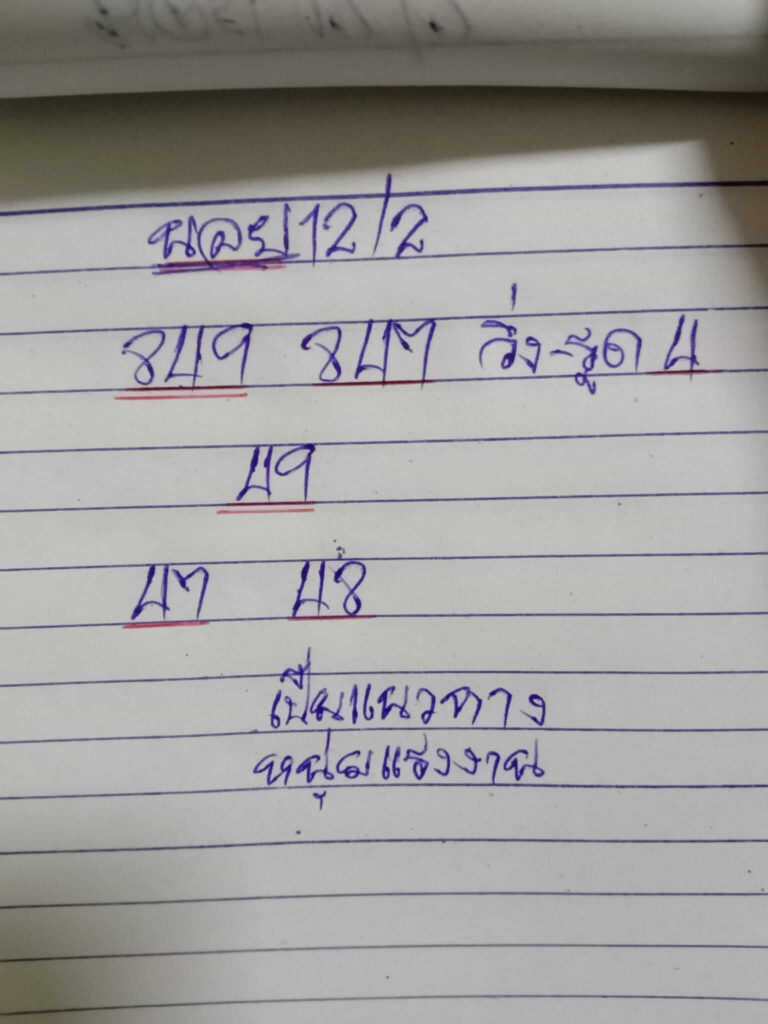 ฮานอย 12/2
849 847 วิ่ง-รูด 4
49
47 48
เป็นแนวทาง
หนุ่มแรงงาน